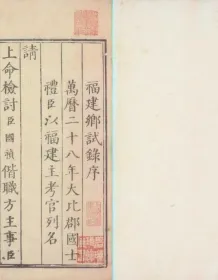 福建鄉試錄序
萬曆二十八年大比郡國士
禮臣以福建主考官列名
請
上命檢討臣國禎偕職方主事臣